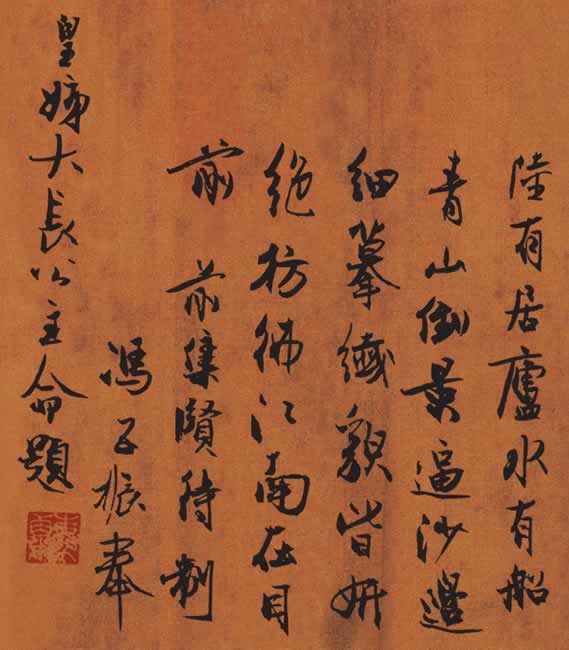 陸有居廬水有船
青山倒景逼沙邊
細摹纖貌皆妍
絕彷彿江南在目
前 前集賢待制
馮子振奉
皇姊大長公主命題